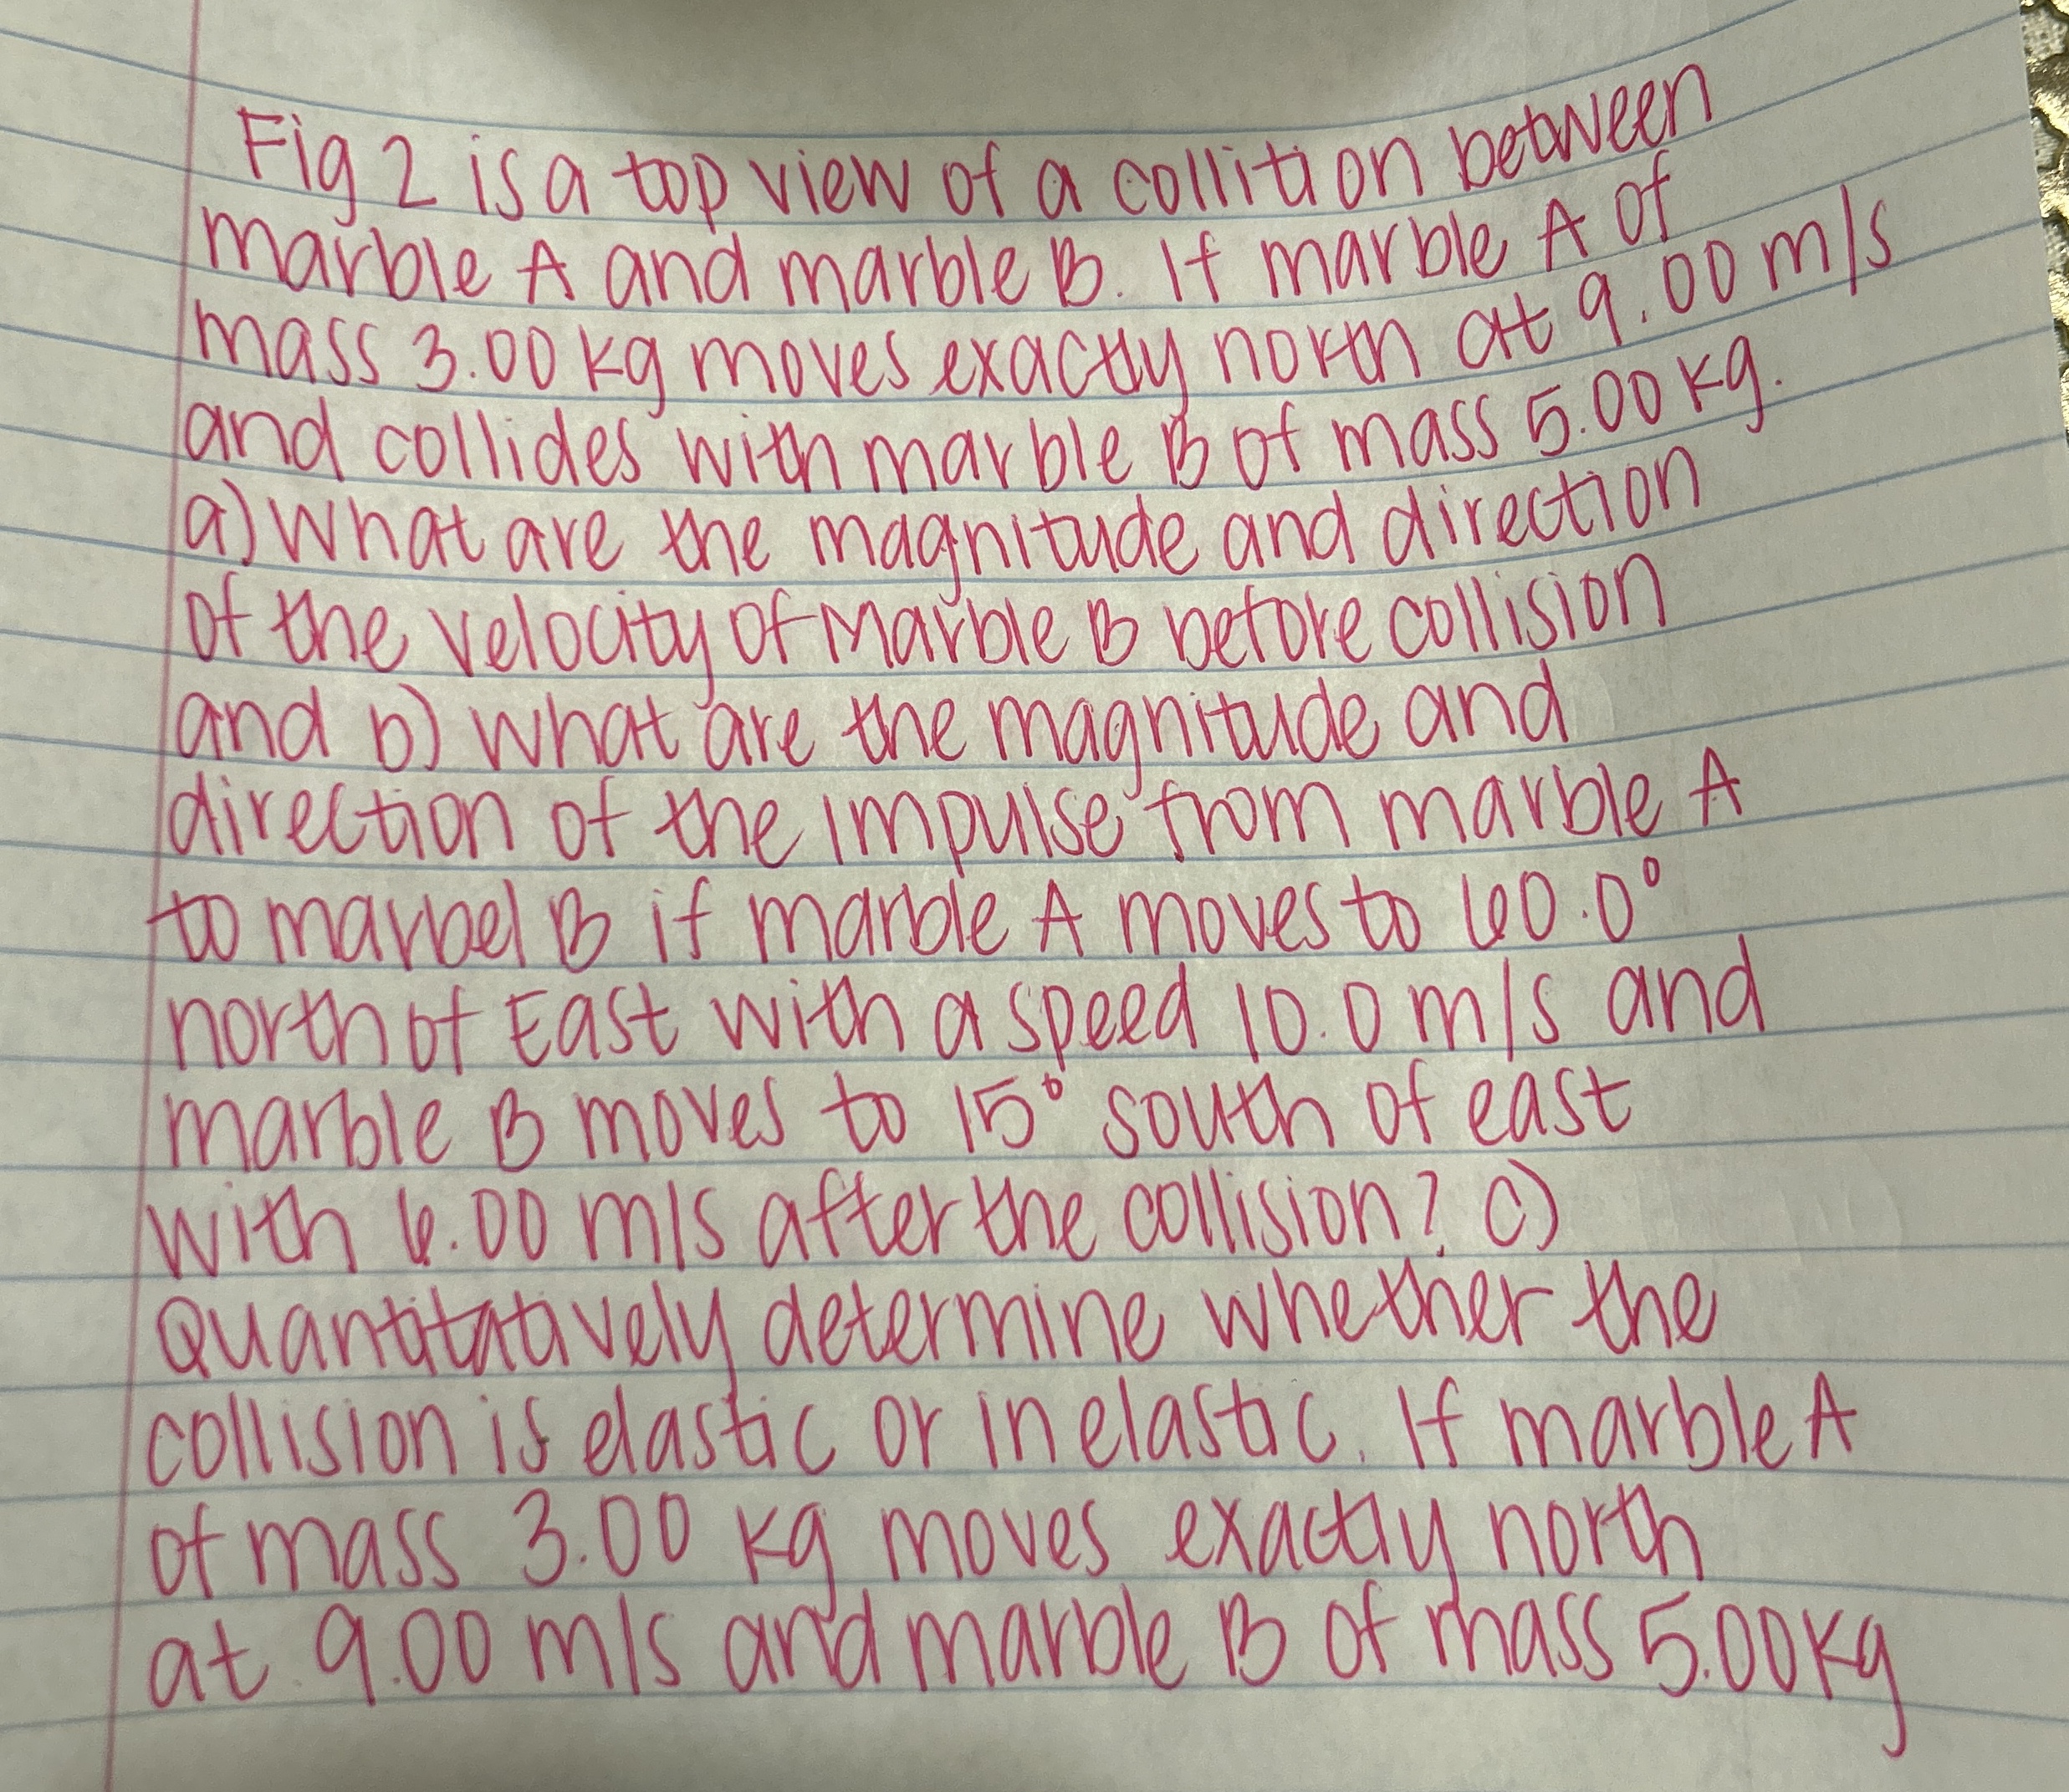 Fig 2 is a top view of a collition between
marble A and marble B. If marble A of
mass 3.00 kg moves exactly north at 9.00 m/s
and collides with marble B of mass 5.00 kg.
a) What are the magnitude and direction
of the velocity of Marble B before collision
and b) what are the magnitude and
direction of the impulse from marble A
to marbel B if marble A moves to 60.0°
north of East with a speed 10.0 m/s and
marble B moves to 15° south of east
with 6.00 m/s after the collision? c)
Quantitatively determine whether the
collision is elastic or inelastic. If marble A
of mass 3.00 kg moves exactly north
at 9.00 m/s and marble B of mass 5.00kg